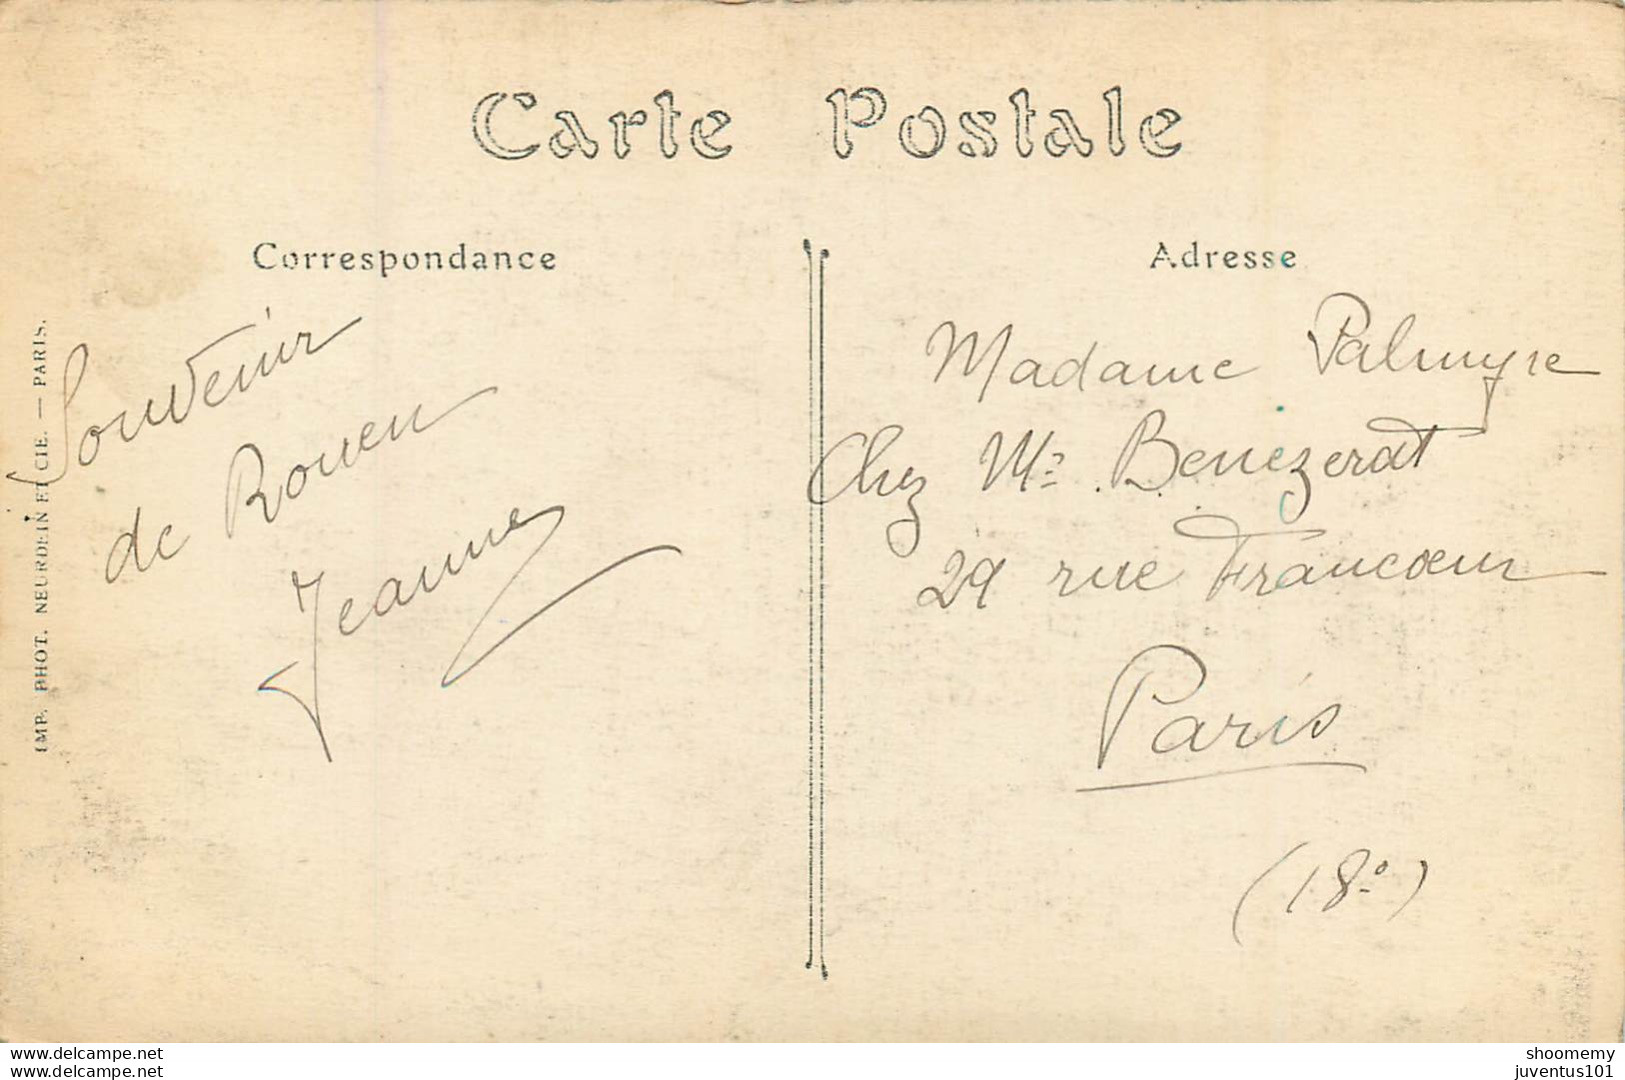 Carte Postale
Correspondance
Souvenir
de Rouen
Jeanne
IMP. PHOT. NEURDEIN ET CIE. — PARIS.
Adresse
Madame Palmyre
Chez Mr Benezerat
29 rue Francœur
Paris
(18e)
www.delcampe.net
www.delcampe.net
shoomemy
juventus101